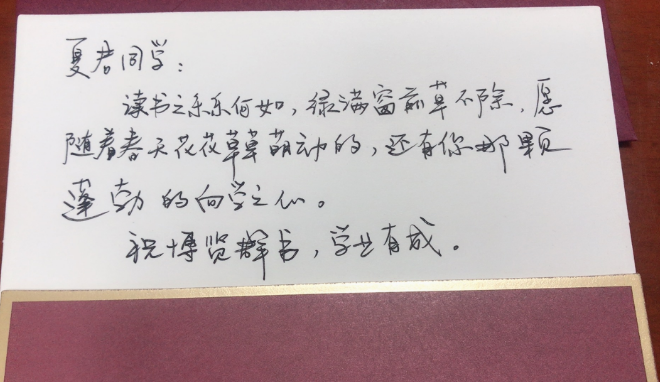 夏君同学：
读书之乐乐何如，绿满窗前草不除，愿
随着春天花花草草萌动的，还有你那颗
蓬勃的向学之心。
祝博览群书，学业有成。